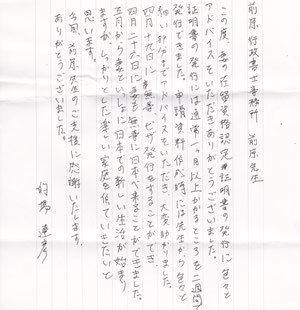 前原行政書士事務所　前原先生
この度、妻の在留資格認定証明書の発行に色々と
アドバイスをいただきありがとうございました。
証明書の発行には通常一ヶ月以上かかるところを二週間で
発行できました。申請資料作成時には先生から色々と
細い部分までアドバイスをいただき大変助かりました。
四月十九日に無事、ビザ発行をすることができ、
四月二十九日に妻も無事に日本へ来ることができました。
五月から妻といっしょに日本での新しい生活が始まり
ますが、しっかりとした楽しい家庭を保っていきたいと
思います。
今回、前原先生のご支援に感謝いたします。
ありがとうございました。